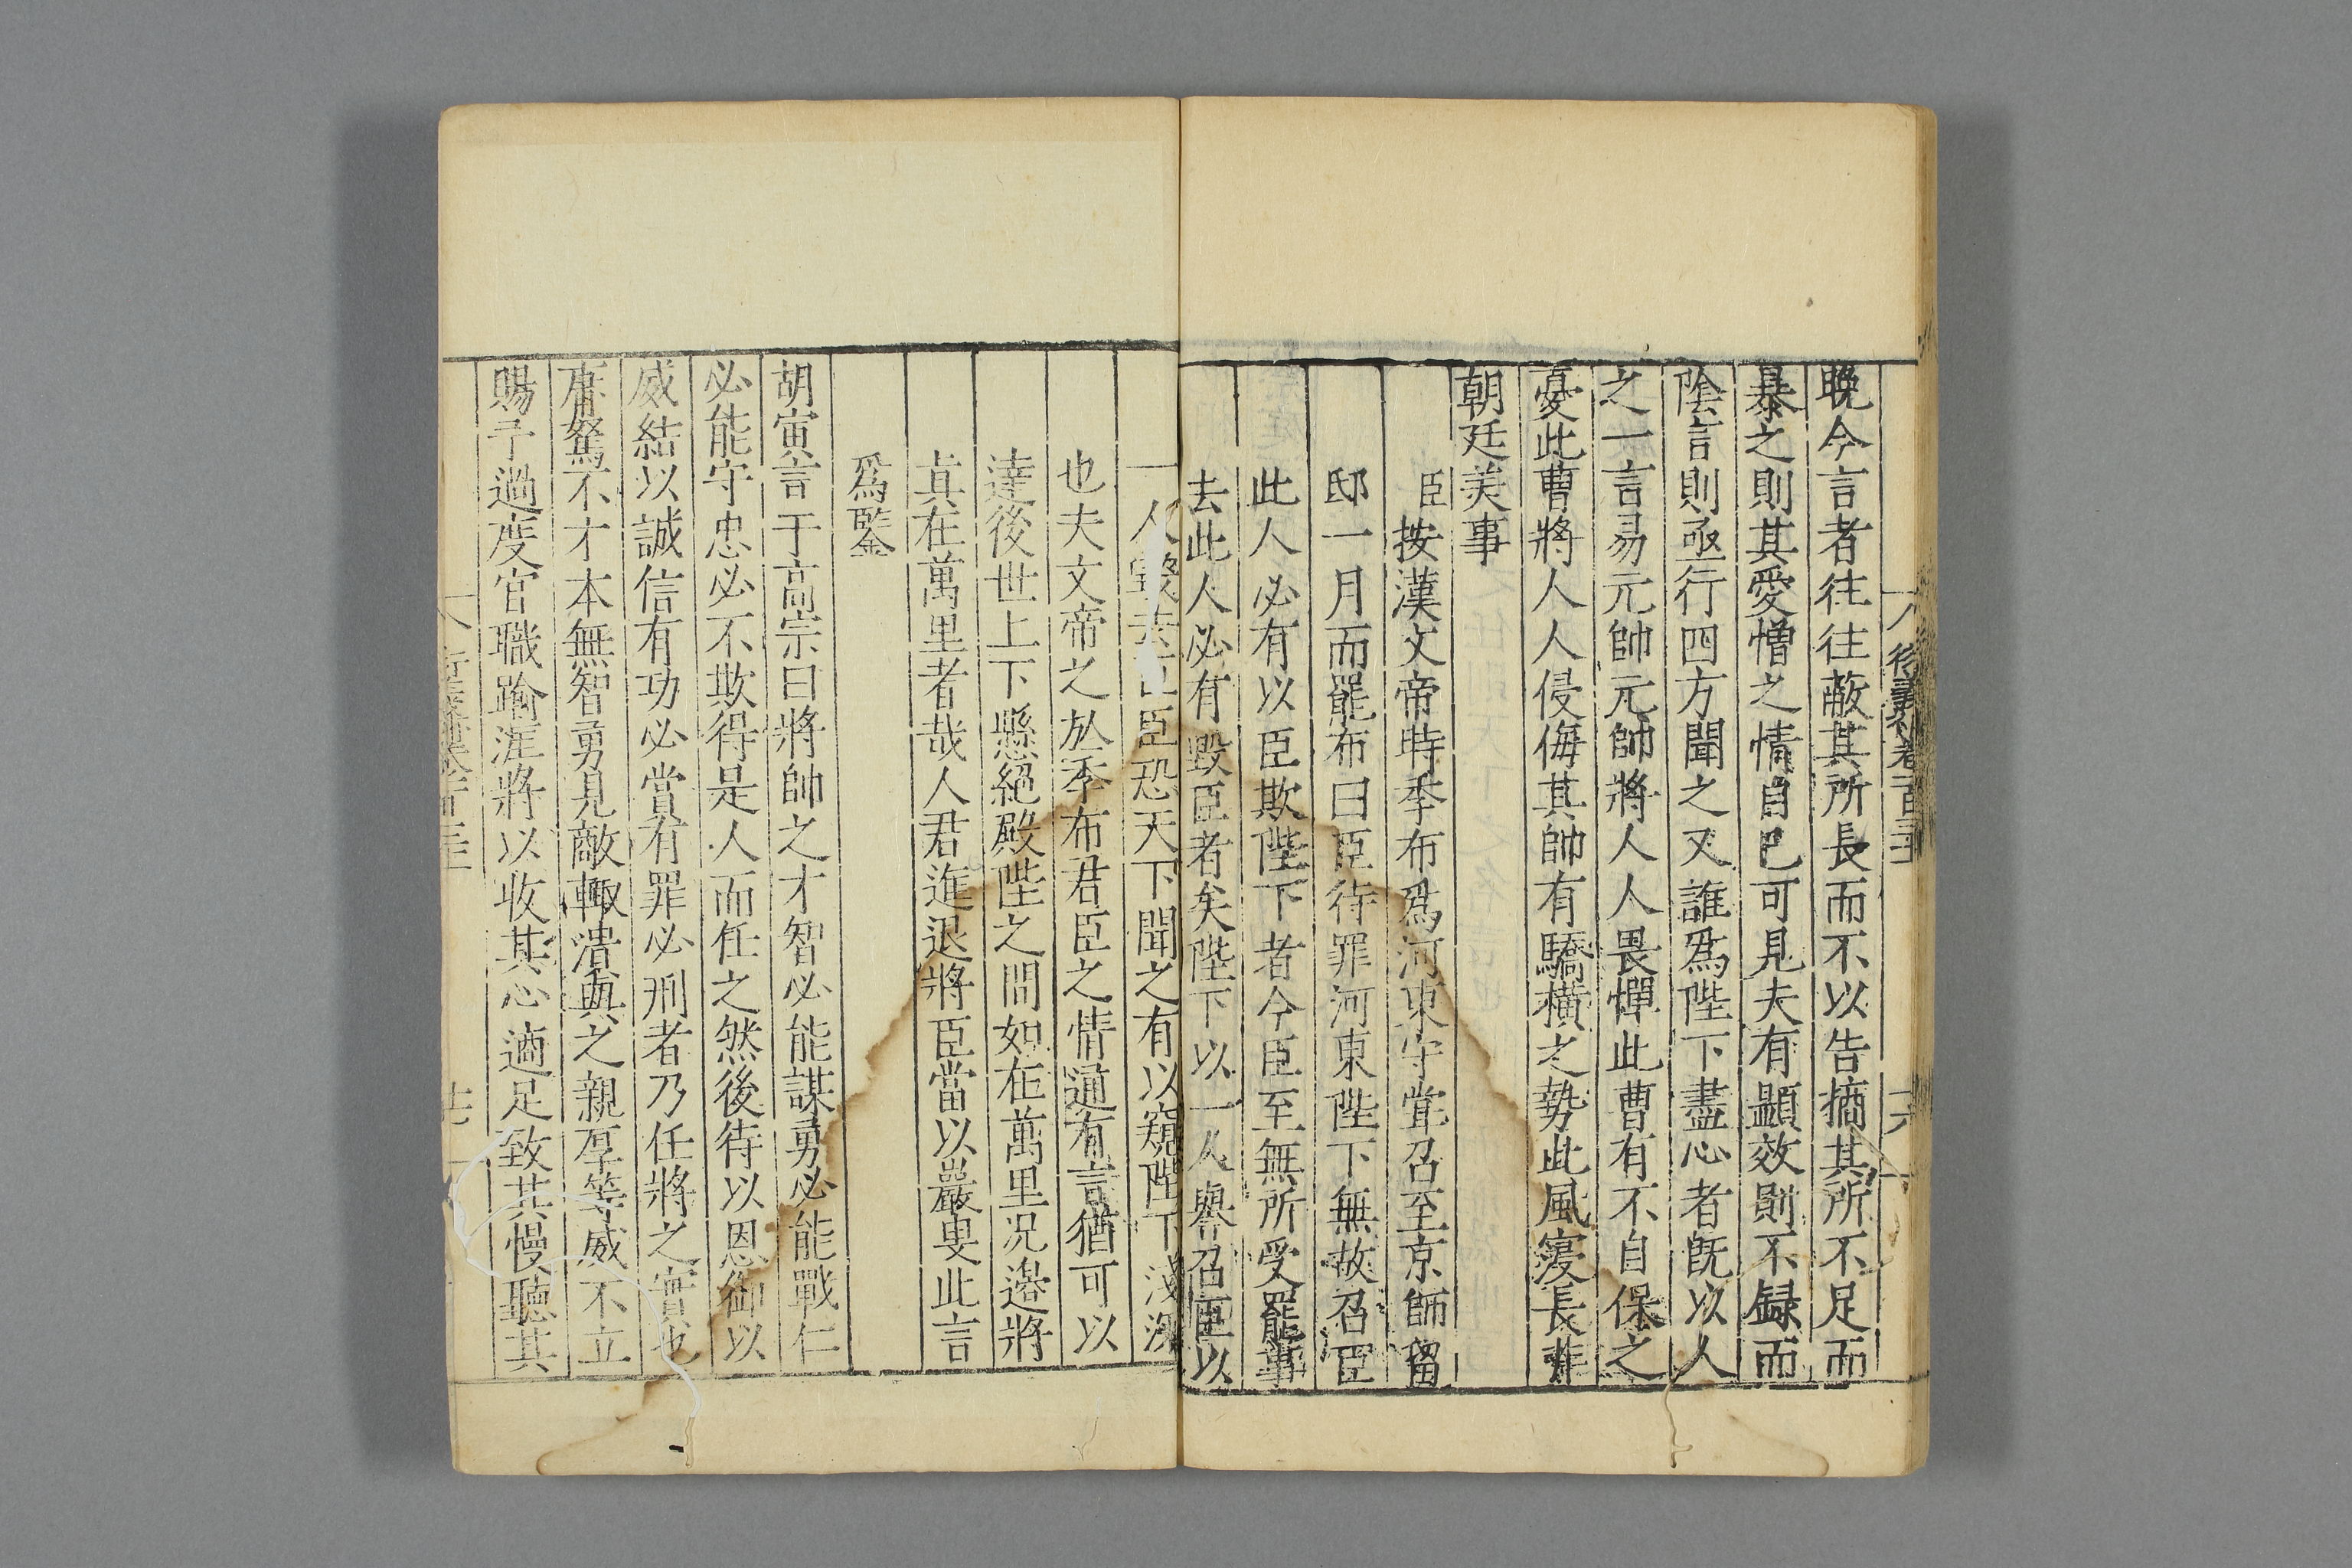 晚今言者往往蔽其所長而不以告摘其所不足而
暴之則其愛憎之情自已可見夫有顯效則不録而
隂言則亟行四方聞之又誰爲陛下盡心者旣以人
之一言易元帥元帥將人人畏憚此曹有不自保之
憂此曹將人人侵侮其帥有驕橫之勢此風寖長非
朝廷美事
臣按漢文帝時季布爲河東守嘗召至京師留
邸一月而罷布曰臣待罪河東陛下無故召臣
此人必有以臣欺陛下者今臣至無所受罷事
去此人必有毀臣者矣陛下以一人譽召臣以
一人毀去臣臣恐天下聞之有以窺陛下淺深
也夫文帝之於季布君臣之情通有言猶可以
達後世上下懸絕殿陛之間如在萬里况邉將
真在萬里者哉人君進退將臣當以嚴叟此言
爲鑒
胡寅言于高宗曰將帥之才智必能謀勇必能戰仁
必能守忠必不欺得是人而任之然後待以恩御以
威結以誠信有功必賞有罪必刑者乃任將之實也
庸駑不才本無智勇見敵輙潰與之親厚等威不立
賜予過度官職踰涯將以收其心適足致其慢聽其